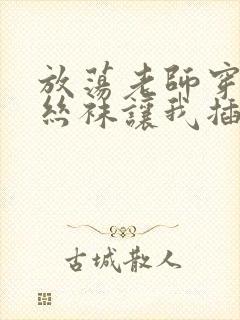 放蕩老師穿
絲袜讓我插
古城散人